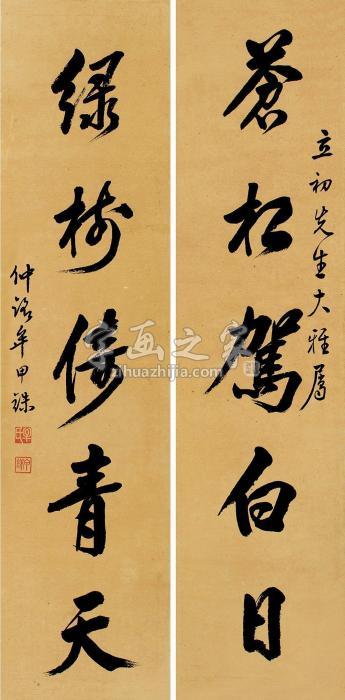 立初先生大雅屬
蒼松駕白日
綠樹倚青天
仲 牟甲銖
字画之家
zihuazhijia.com